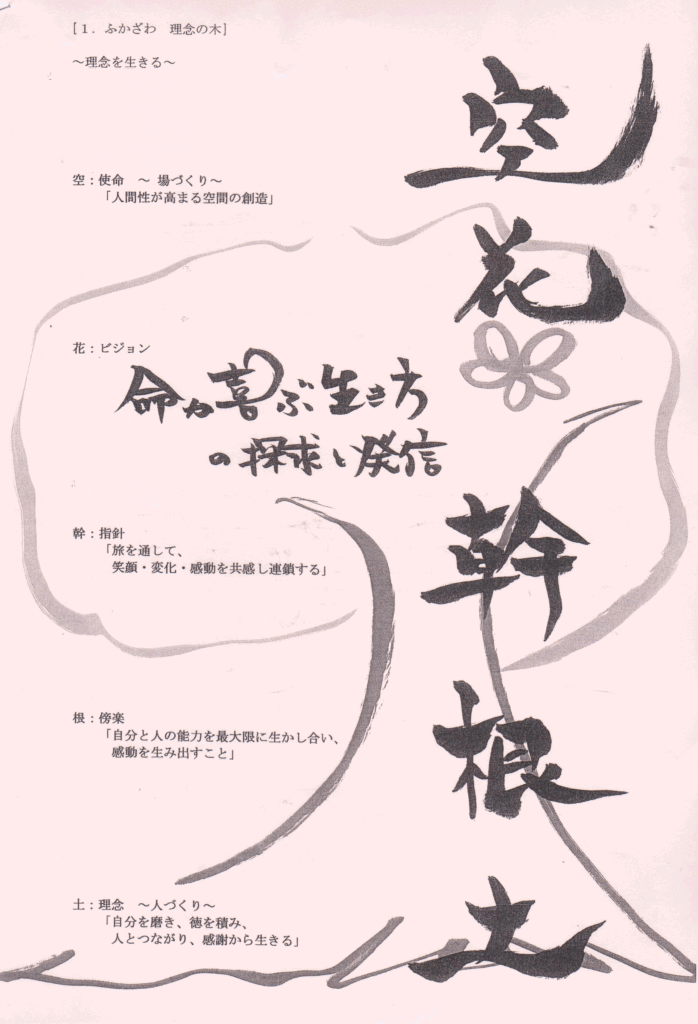 ［１．ふかざわ　理念の木］
～理念を生きる～
空
空：使命　～ 場づくり～
「人間性が高まる空間の創造」
花
花：ビジョン
命が喜ぶ生き方
の探求と発信
幹
幹：指針
「旅を通して、
笑顔・変化・感動を共感し連鎖する」
根
根：傍楽
「自分と人の能力を最大限に生かし合い、
感動を生み出すこと」
土
土：理念　～人づくり～
「自分を磨き、徳を積み、
人とつながり、感謝から生きる」